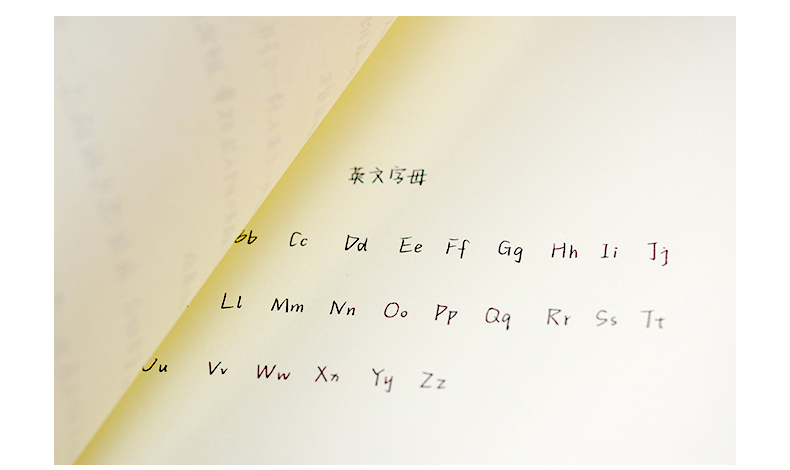 英文字母
bb Cc Dd Ee Ff Gg Hh Ii Jj
Ll Mm Nn Oo Pp Qq Rr Ss Tt
Uu Vv Ww Xx Yy Zz